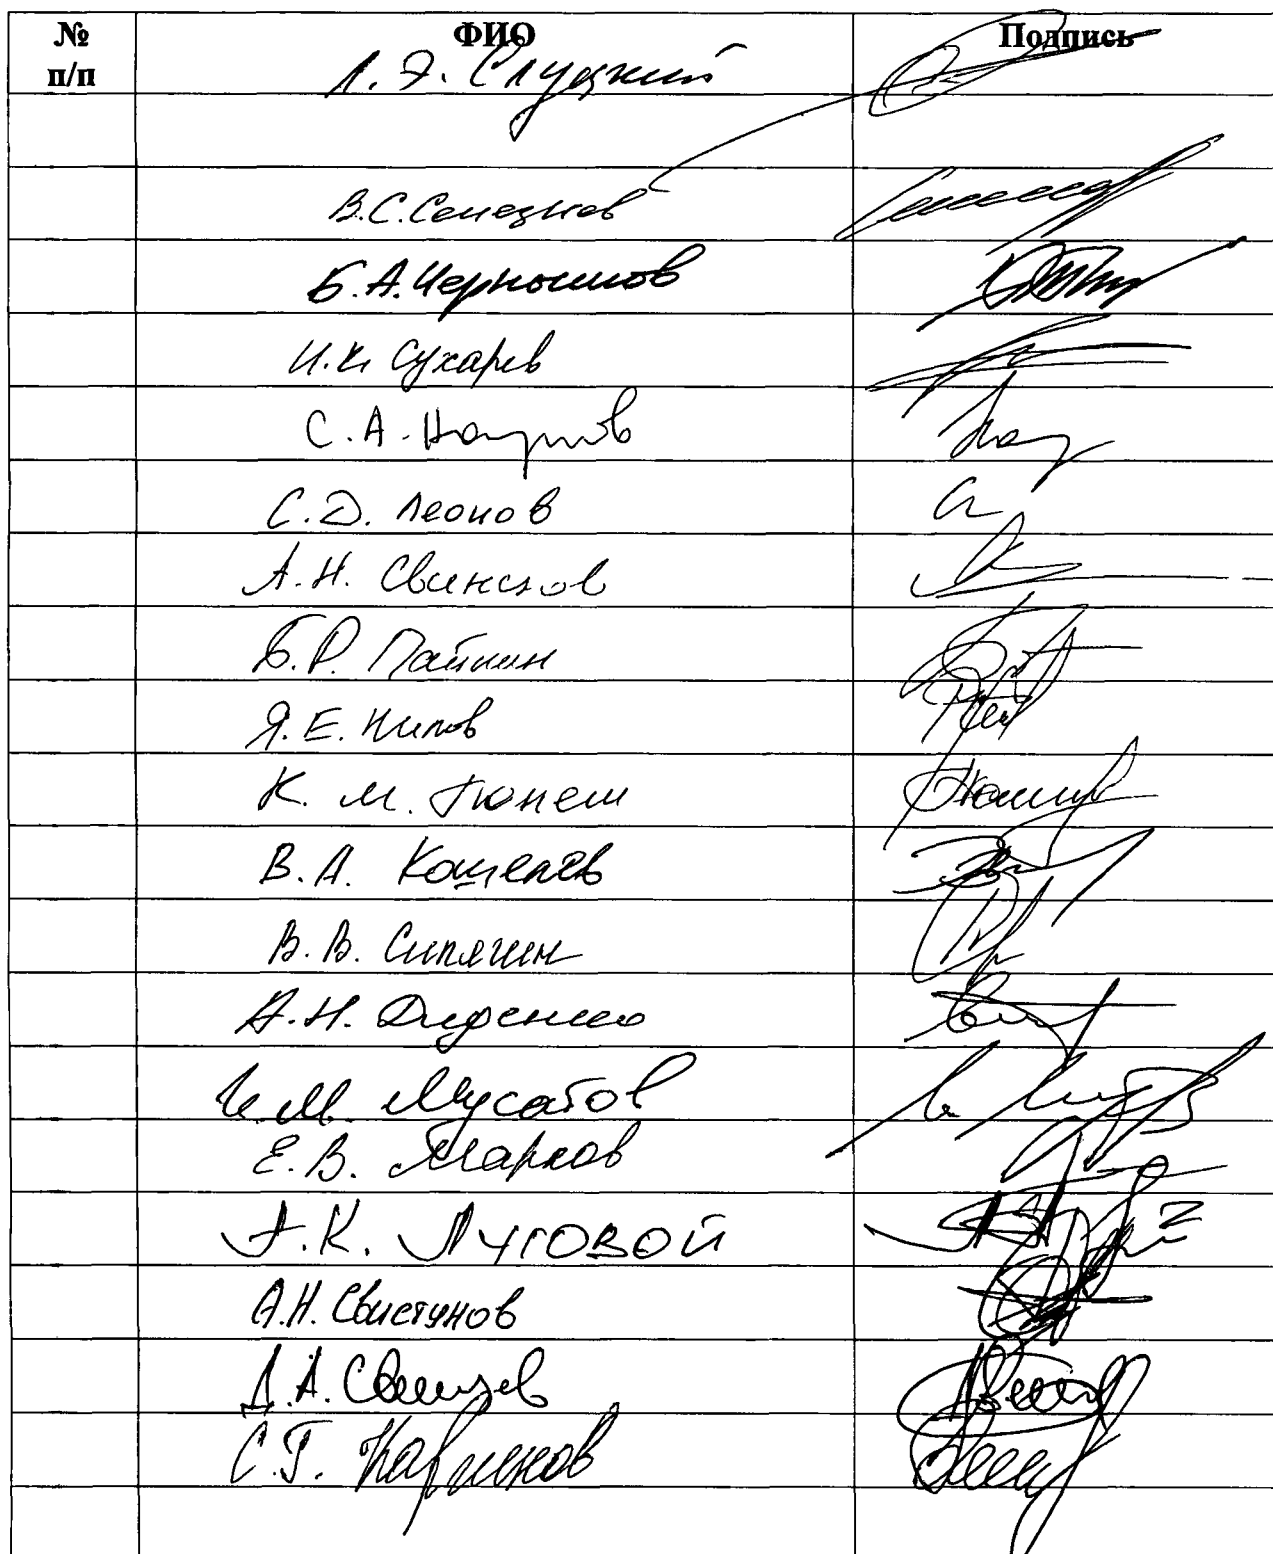 № п/п ФИО Подпись
Л.Э. Слуцкий
В.С. Селезнев
Б.А. Чернышов
И.К. Сухарев
С.А. Наумов
С.Д. Леонов
А.Н. Свинцов
Б.Р. Пайкин
Я.Е. Нилов
К.М. Тюнеш
В.А. Кошелев
В.В. Сипягин
А.Н. Диденко
И.М. Мусатов
Е.В. Марков
А.К. Луговой
А.Н. Свистунов
Д.А. Свищев
С.Г. Каргинов